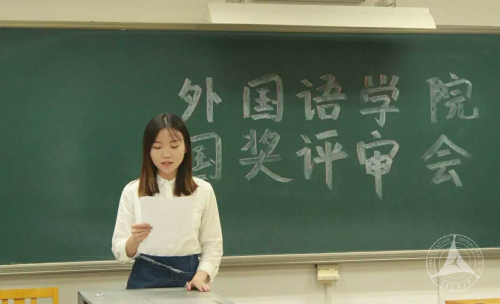 外国语学院
国奖评审会